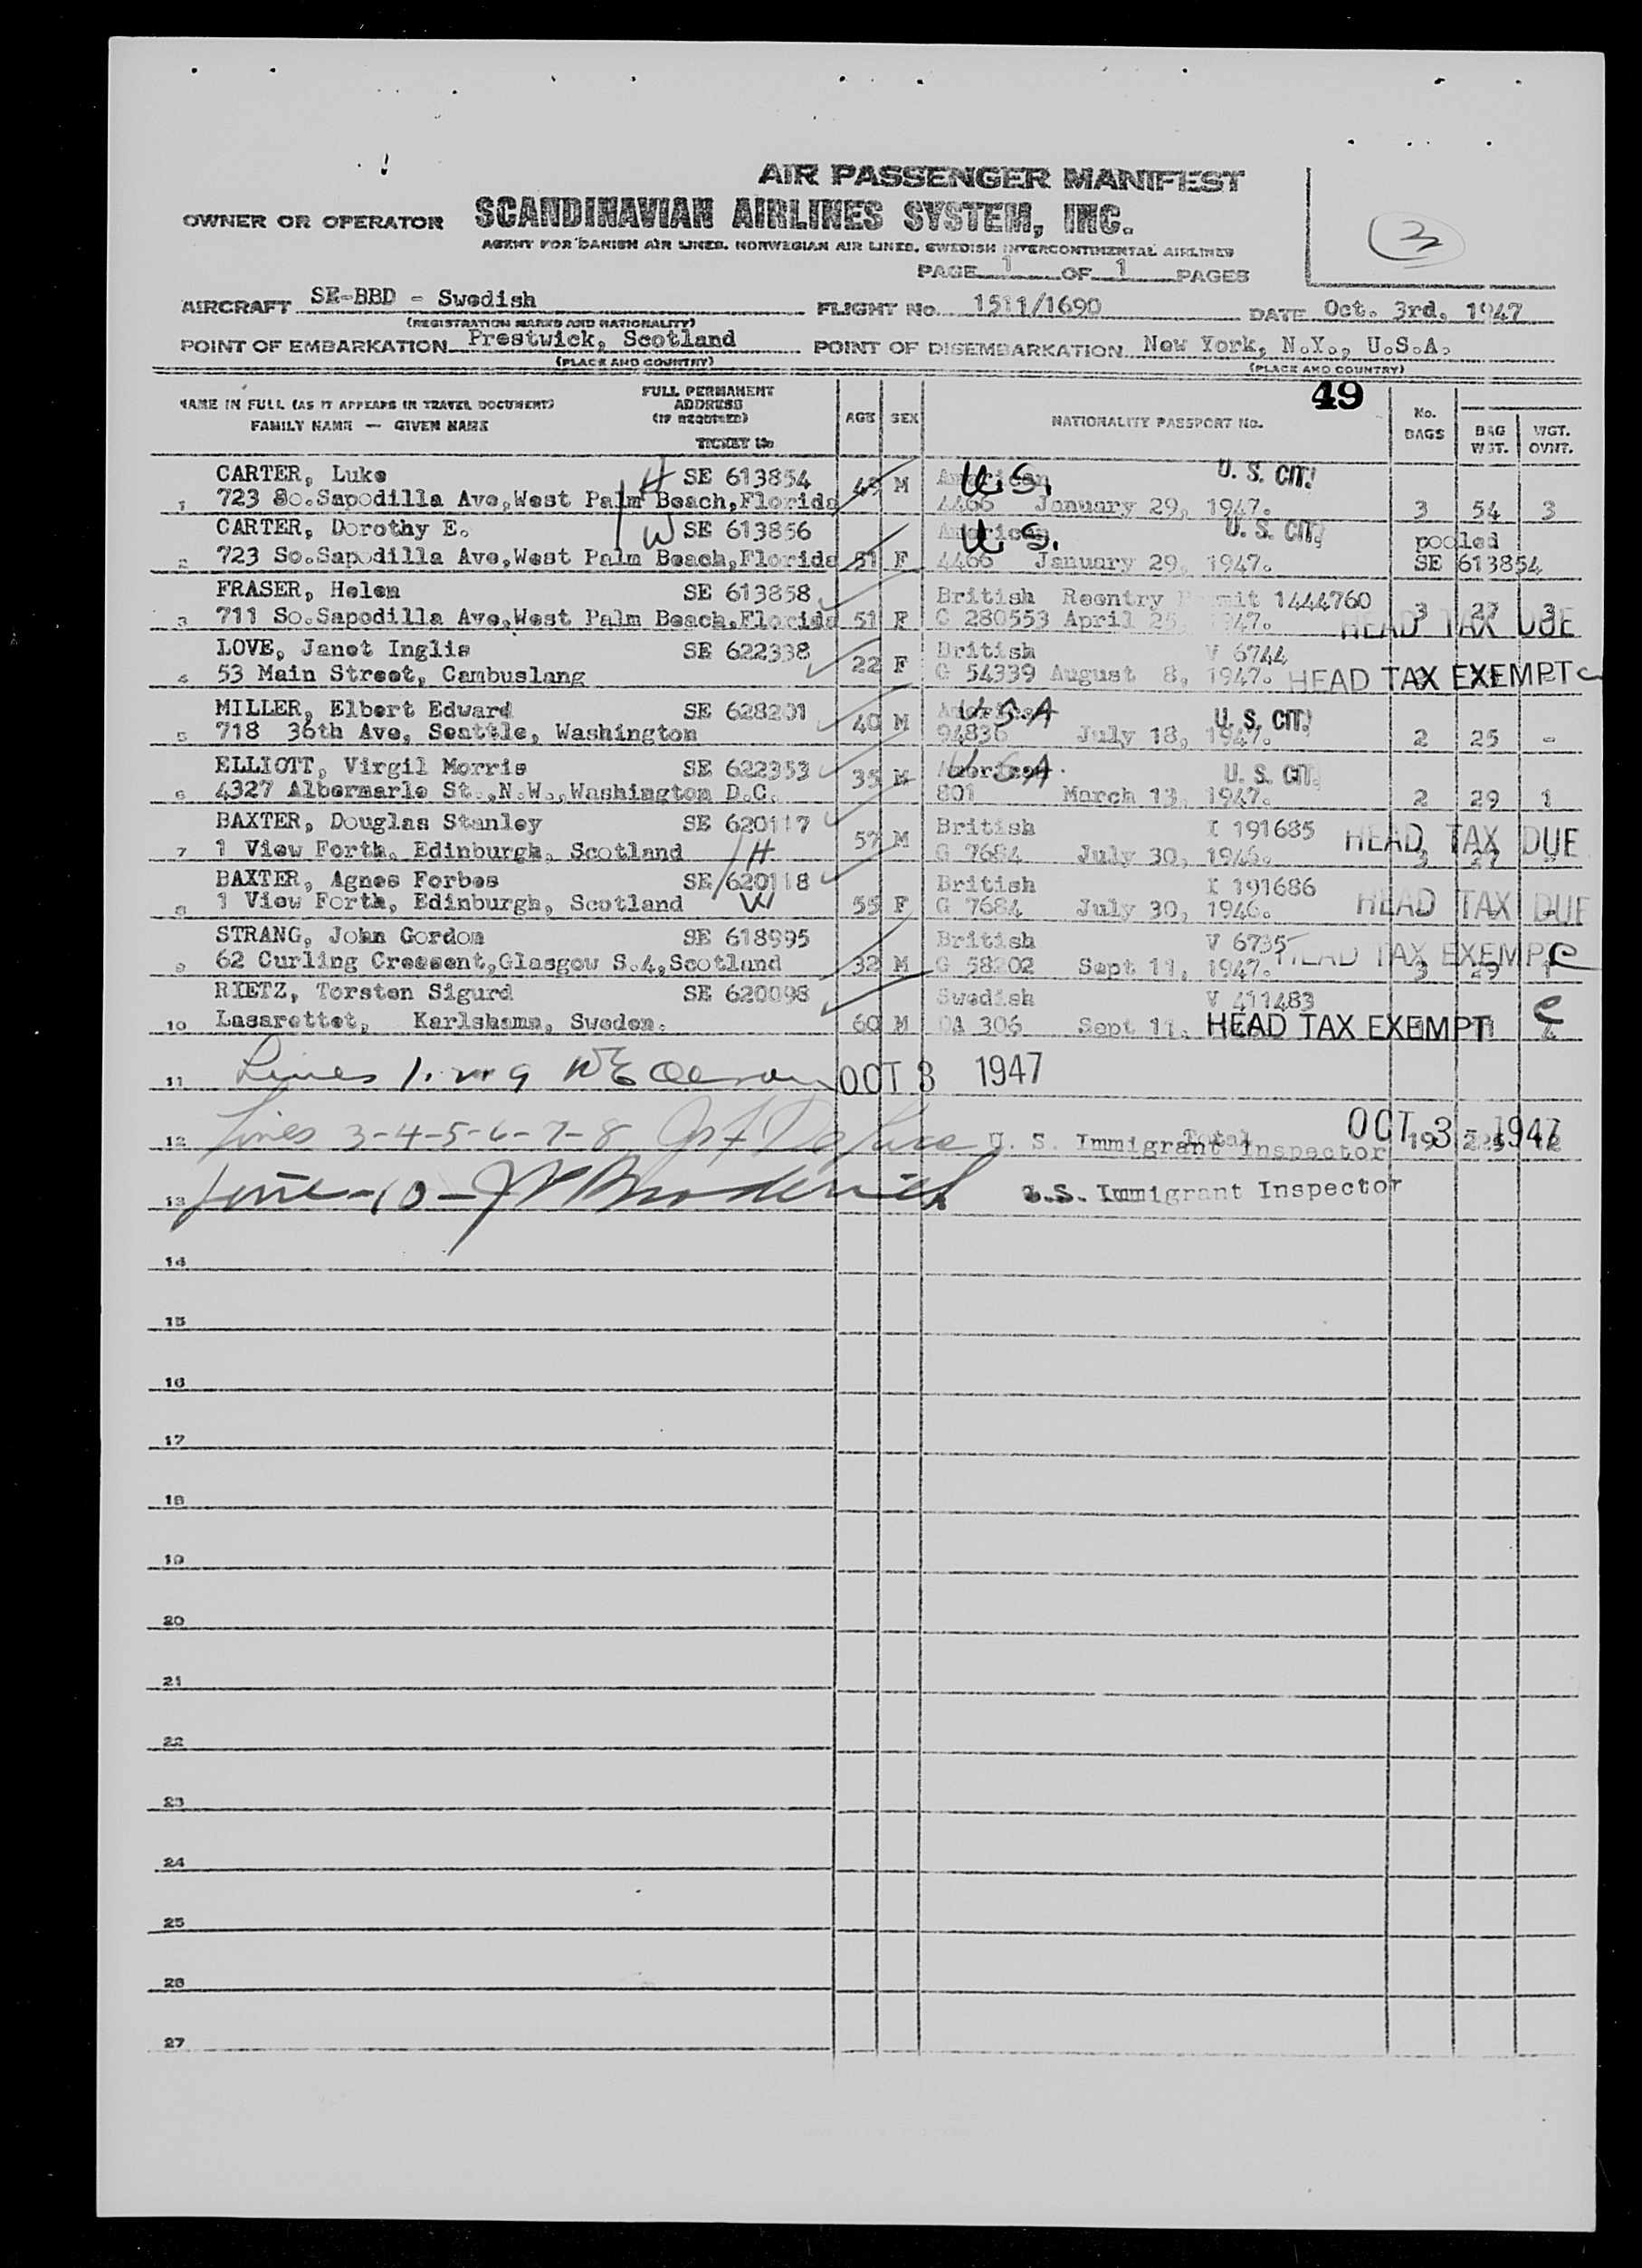 AIR PASSENGER MANIFEST
OWNER OR OPERATOR SCANDINAVIAN AIRLINES SYSTEM, INC.
AGENT FOR DANISH AIR LINES, NORWEGIAN AIR LINES, SWEDISH INTERCONTINENTAL AIRLINES
3
PAGE 1 OF 1 PAGES
AIRCRAFT SE-BBD - Swedish FLIGHT No. 1511/1690 DATE Oct. 3rd, 1947
(REGISTRATION MARKS AND NATIONALITY)
POINT OF EMBARKATION Prestwick, Scotland POINT OF DISEMBARKATION New York, N.Y., U.S.A.
(PLACE AND COUNTRY) (PLACE AND COUNTRY)
49
NAME IN FULL (AS IT APPEARS IN TRAVEL DOCUMENT) FULL PERMANENT ADDRESS (IF REQUIRED) AGE SEX NATIONALITY PASSPORT No. No. BAGS BAG WGT. WGT. OVWT.
FAMILY NAME — GIVEN NAME TICKET No
CARTER, Luke H SE 613854 American U.S. U. S. CIT.
1 723 So.Sapodilla Ave,West Palm Beach,Florida M 4466 January 29, 1947. 3 54 3
CARTER, Dorothy E. W SE 613856 American U.S. U. S. CIT. pooled
2 723 So.Sapodilla Ave,West Palm Beach,Florida 51 F 4466 January 29, 1947. SE 613854
FRASER, Helen SE 613858 British Reentry Permit 1444760
3 711 So.Sapodilla Ave,West Palm Beach,Florida 51 F C 280553 April 25, 1947. 3 27 3 HEAD TAX DUE
LOVE, Janet Inglis SE 622338 British V 6744
4 53 Main Street, Cambuslang 22 F G 54339 August 8, 1947. HEAD TAX EXEMPT
MILLER, Elbert Edward SE 628201 American U.S.A U. S. CIT.
5 718 36th Ave, Seattle, Washington 40 M 94836 July 18, 1947. 2 25 -
ELLIOTT, Virgil Morris SE 622353 American U S A U. S. CIT.
6 4327 Albermarle St.,N.W.,Washington D.C. 35 M 801 March 13, 1947. 2 29 1
BAXTER, Douglas Stanley SE 620117 British I 191685
7 1 View Forth, Edinburgh, Scotland H 57 M G 7684 July 30, 1946. HEAD TAX DUE
BAXTER, Agnes Forbes SE 620118 British I 191686
8 1 View Forth, Edinburgh, Scotland W 55 F G 7684 July 30, 1946. HEAD TAX DUE
STRANG, John Gordon SE 618995 British V 6735 HEAD TAX EXEMPT
9 62 Curling Cresent,Glasgow S.4,Scotland 32 M G 58202 Sept 11, 1947. 3 29 1
RIETZ, Torsten Sigurd SE 620098 Swedish V 411483
10 Lasarettet, Karlshamn, Sweden. 60 M DA 306 Sept 11, HEAD TAX EXEMPT
11 Lines 1. OCT 3 1947
12 Lines 3-4-5-6-7-8 U. S. Immigrant Inspector Total OCT 3 - 1947 19
13 Line-10- U.S. Immigrant Inspector
14
15
16
17
18
19
20
21
22
23
24
25
26
27